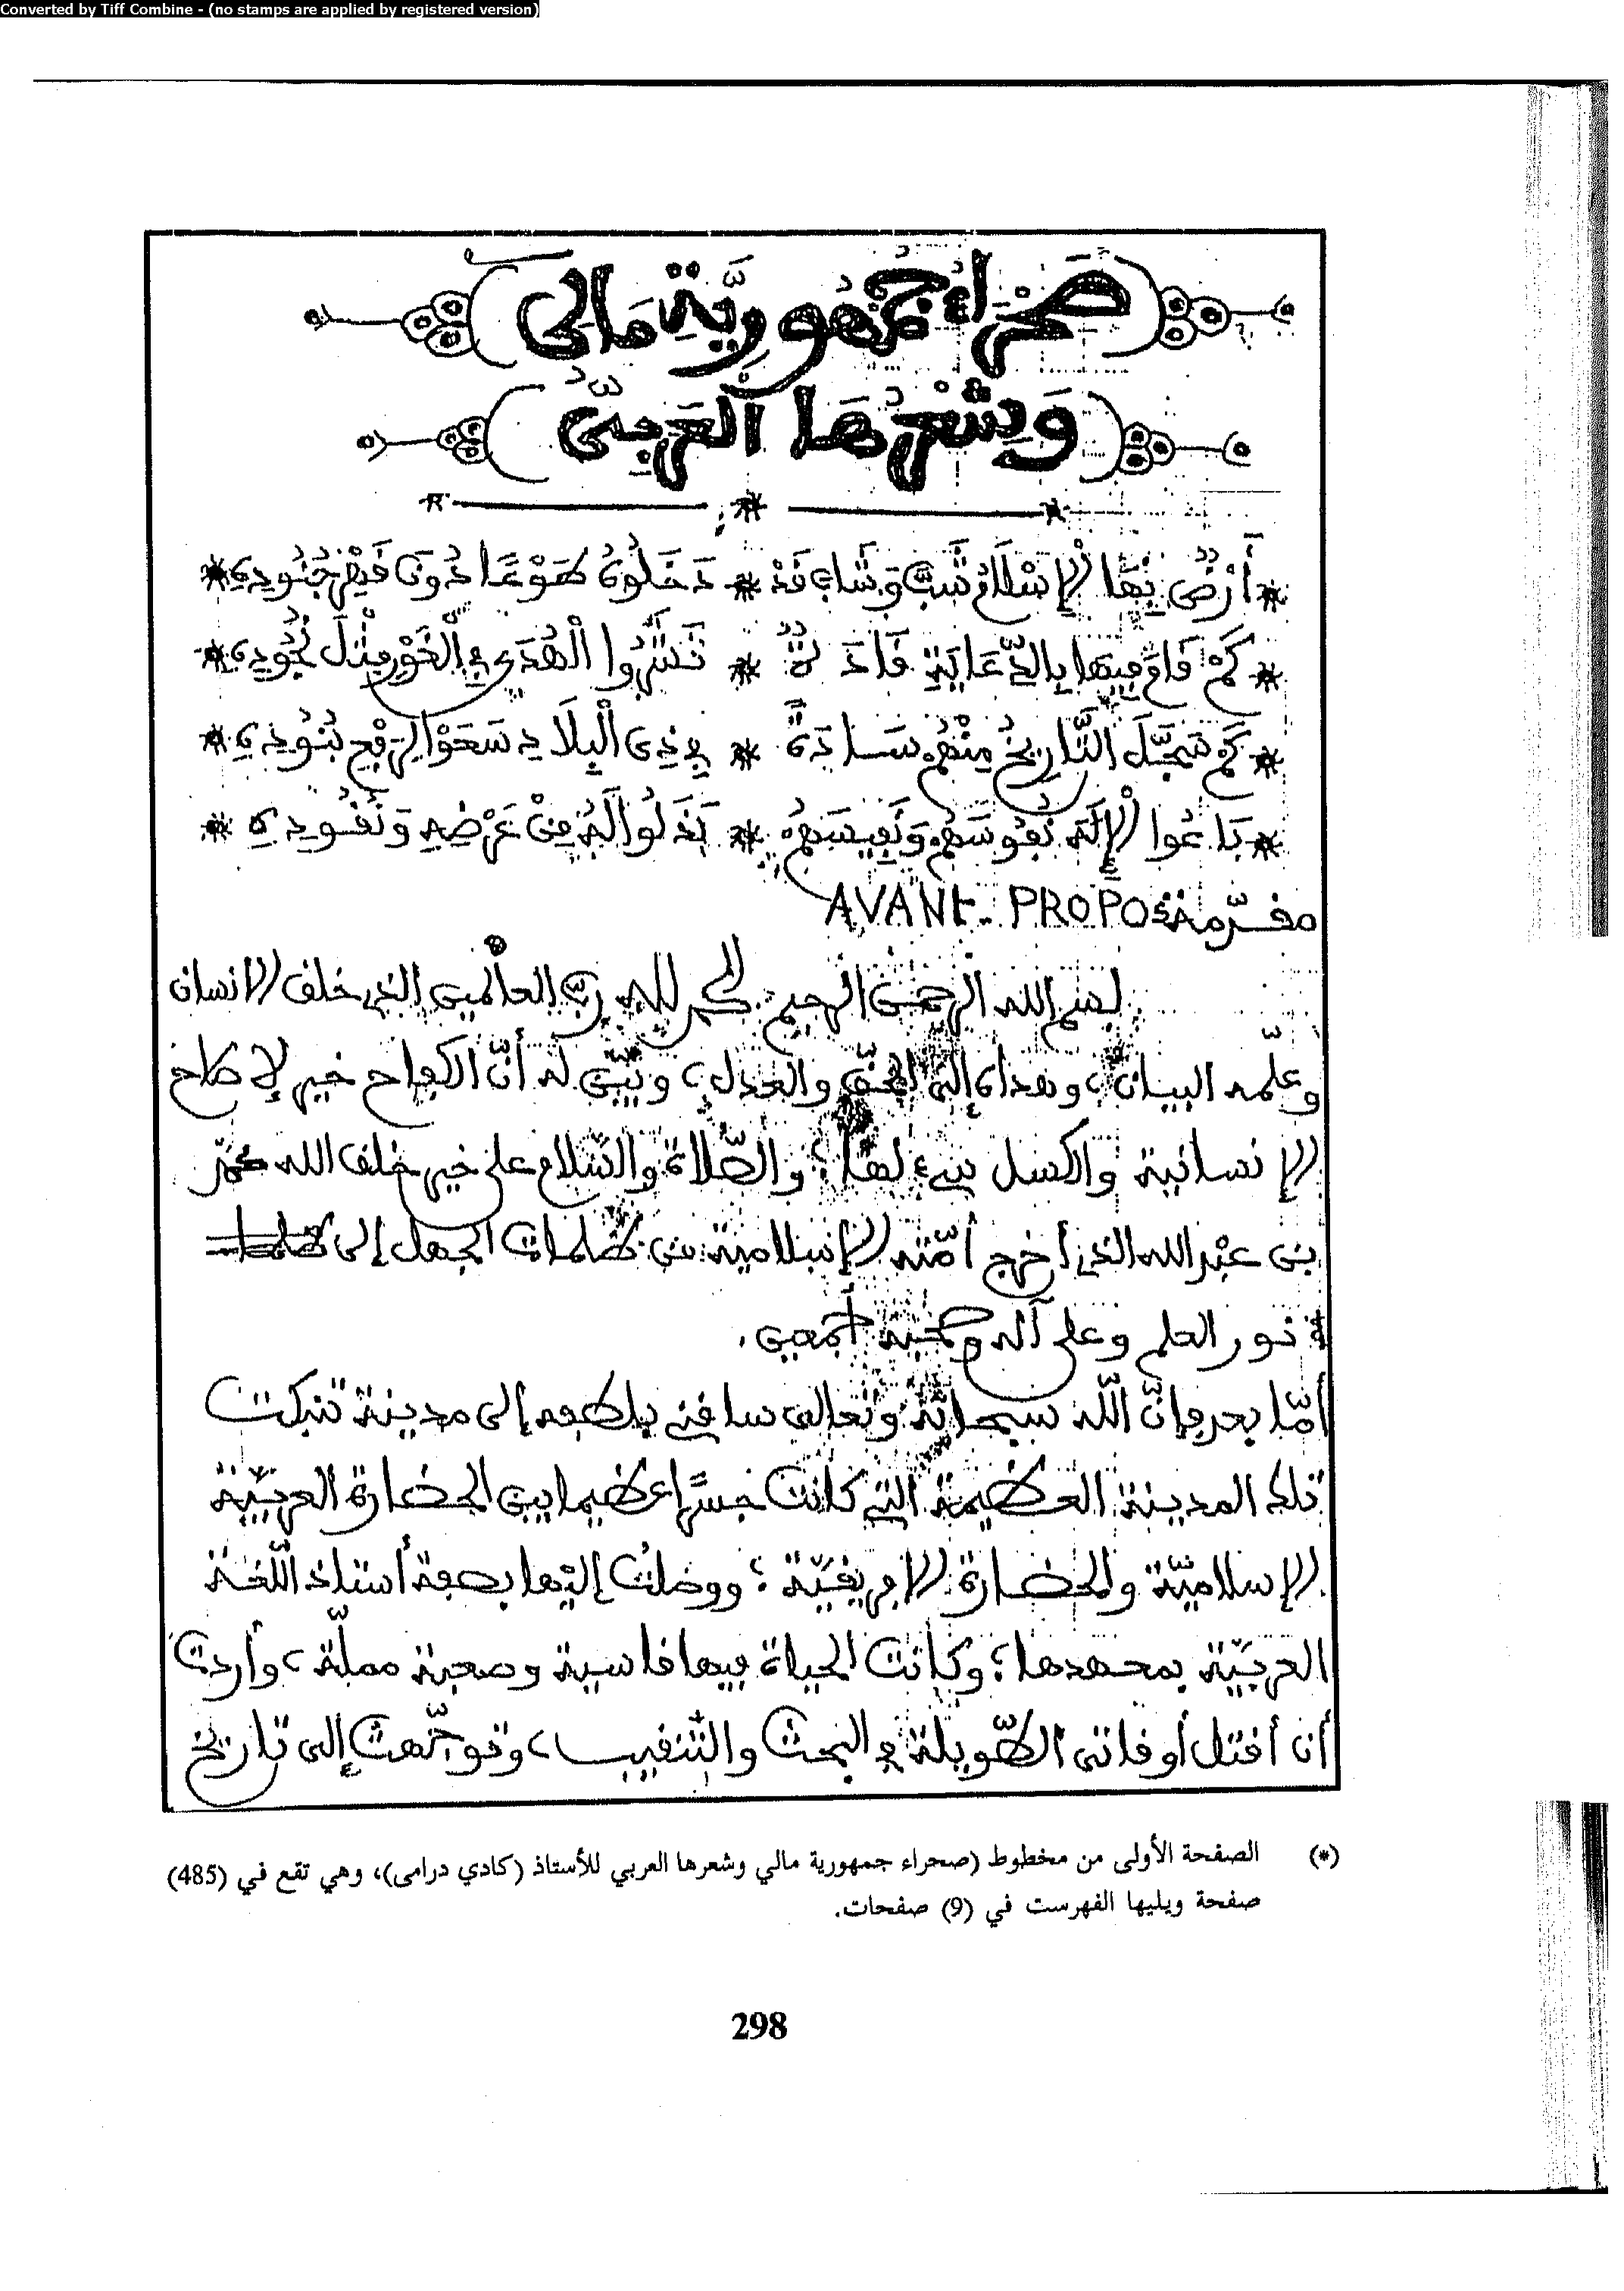 Converted by Tiff Combine - (no stamps are applied by registered version)
صَحْرَاءُ جُمْهُورِيَّةِ مَالِي
وَشِعْرُهَا الْعَرَبِيُّ
* أَرْضٌ بِهَا الْإِسْلَامُ شَبَّ وَشَابَ قَدْ * دَخَلُوهُ طَوْعًا دُونَ قَهْرِ جُنُودِ *
* كَمْ قَامَ فِيهَا بِالدِّعَايَةِ قَادَةٌ * نَشَرُوا الْهُدَى فِي الْغَوْرِ مِثْلَ نُجُودِ *
* كَمْ سَجَّلَ التَّارِيخُ مِنْهُمْ سَادَةً * فِي ذِي الْبِلَادِ سَعَوْا لِرَفْعِ بُنُودِ *
* بَاعُوا الْإِلَهَ نُفُوسَهُمْ وَنَفِيسَهُمْ * بَذَلُوا لَهُ مِنْ عَرْضِهِ وَنُقُودِهِ *
مقدّمة AVANT-PROPOS
بسم الله الرحمن الرحيم الحمد لله ربّ العالمين الذي خلق الإنسان
وعلّمه البيان، وهداه إلى الحقّ والعدل، وبيّن له أنّ الكفاح خير لإصلاح
الإنسانية والكسل سيء لها؛ والصّلاة والسّلام على خير خلق الله محمّد
بن عبد الله الذي أخرج أمّته الإسلامية من ظلمات الجهل إلى
نور العلم وعلى آله وصحبه أجمعين.
أمّا بعد فإنّ الله سبحانه وتعالى ساقني بلطفه إلى مدينة تنبكت
تلك المدينة العظيمة التي كانت جسرًا عظيما بين الحضارة العربيّة
الإسلاميّة والحضارة الإفريقيّة؛ ووصلتُ إليها بصفة أستاذ اللّغة
العربيّة بمعهدها؛ وكانت الحياة فيها قاسية وصعبة مملّة، وأردت
أن أقتل أوقاتي الطّويلة في البحث والتّنقيب، وتوجّهت إلى تاريخ
(*) الصفحة الأولى من مخطوط (صحراء جمهورية مالي وشعرها العربي للأستاذ (كادي درامى)، وهي تقع في (485)
صفحة ويليها الفهرست في (9) صفحات.
298